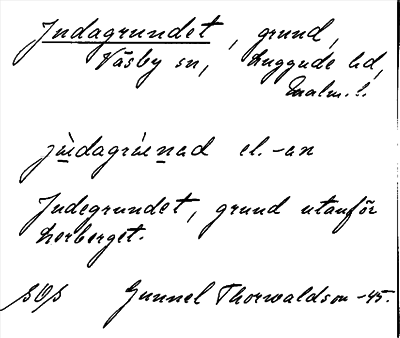 Judagrundet, grund,
Väsby sn, Luggude hd,
Malm. l.
jùdagrúnad el. -an
Judegrundet, grund utanför
Lerberget.
SOS Gunnel Thorwaldson -45.